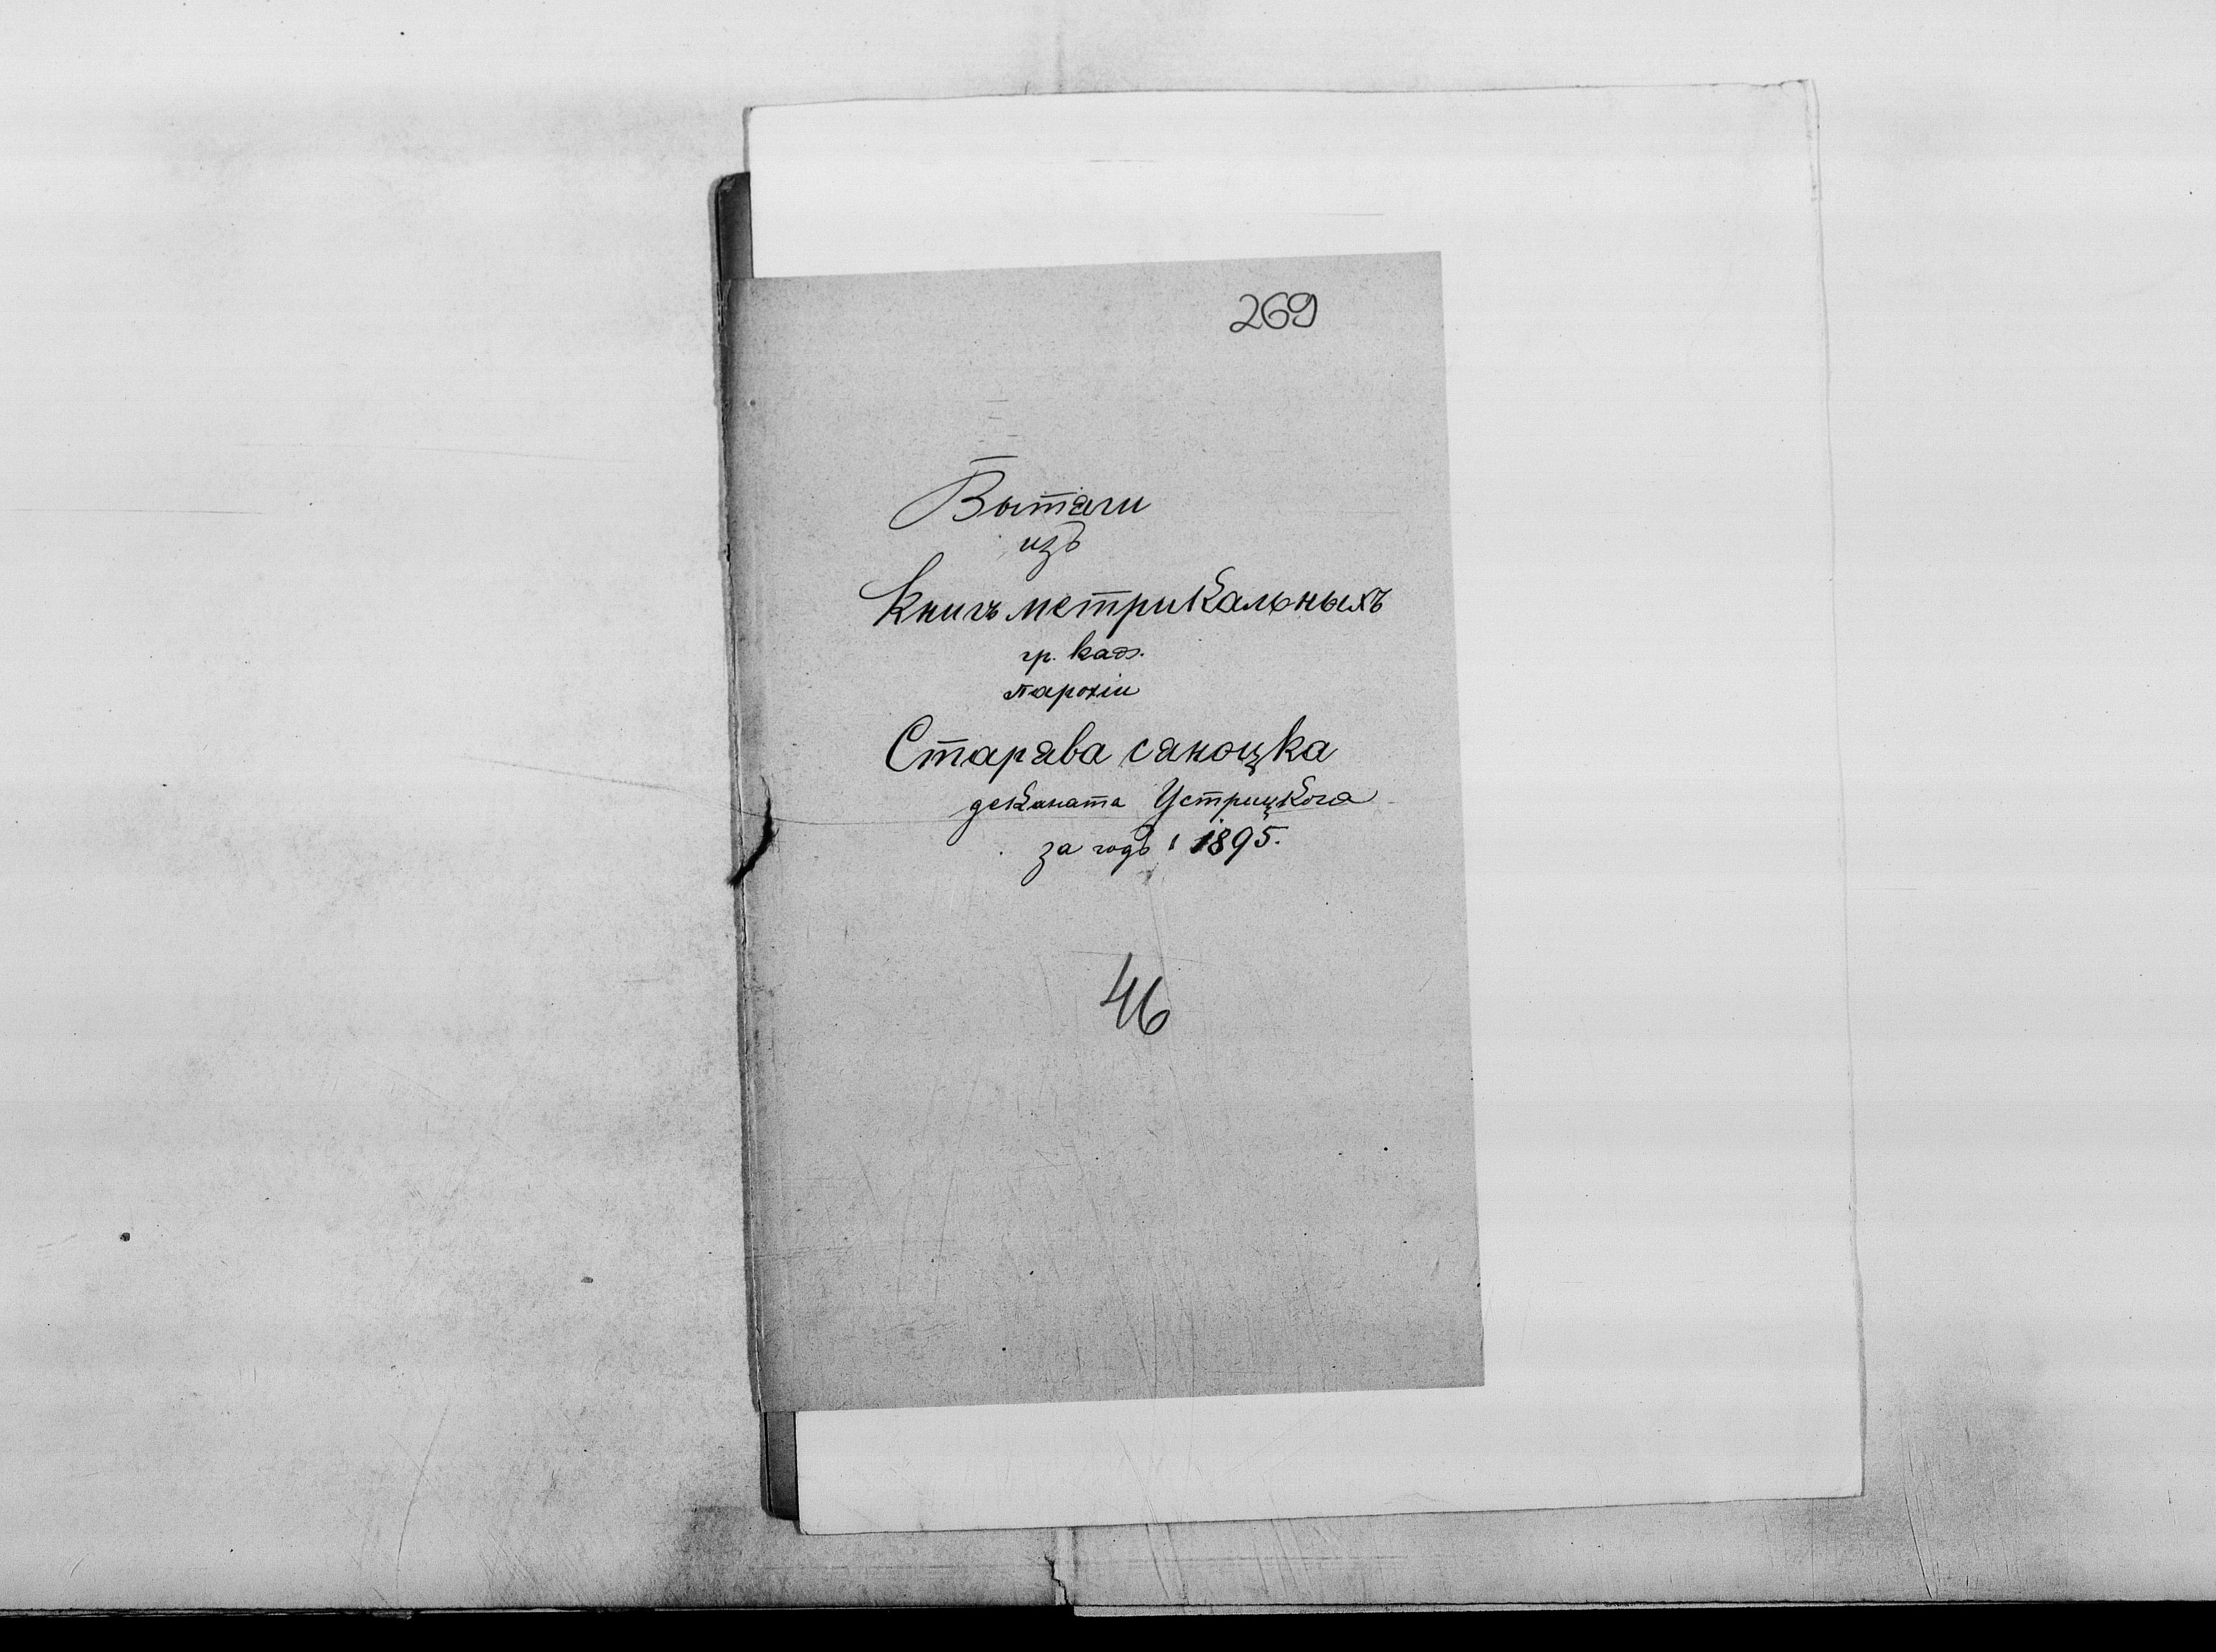 269
Вытяги
изъ
Книгъ метрикальныхъ
гр. каѳ.
парохіи
Старява сяноцка
деканата Устрицкого
за годъ 1895.
46